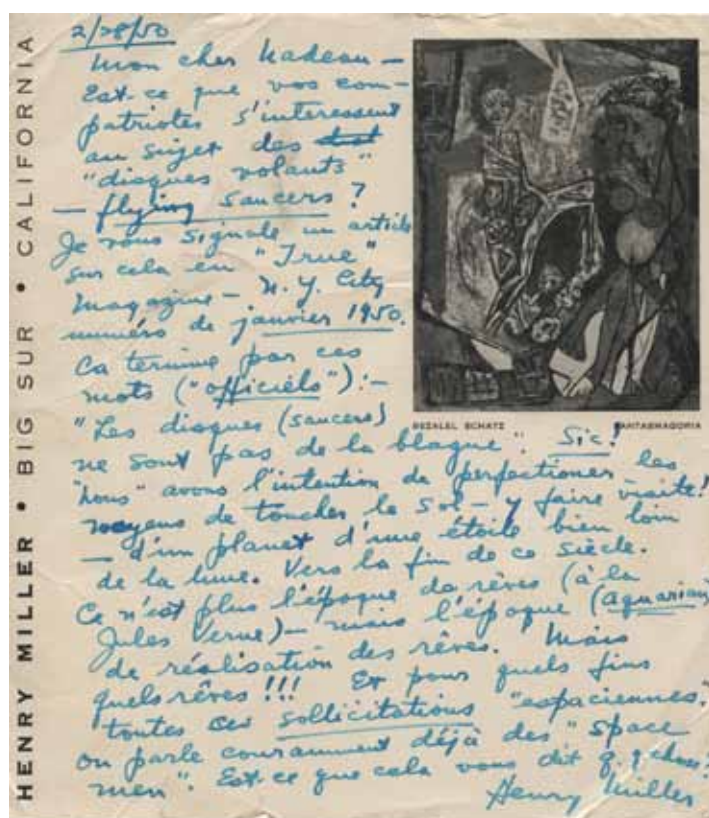 HENRY MILLER • BIG SUR • CALIFORNIA
2/28/50
Mon cher Nadeau —
Est-ce que vos com-
patriotes s'interessent
au sujet des
"disques volants"
— flying saucers?
Je vous signale un article
sur cela en "True"
Magazine — N.Y. City
numéro de janvier 1950.
Ca termine par ces
mots ("officiels"):—
"Les disques (saucers)
BEZALEL SCHATZ FANTASMAGORIA
ne sont pas de la blague". Sic!
"Nous" avons l'intention de perfectioner les
moyens de toucher le sol — y faire visite!
— d'un planet d'une étoile bien loin
de la lune. Vers la fin de ce siècle.
Ce n'est plus l'époque de rêves (à la
Jules Verne) — mais l'époque (aquarian)
de réalisation des rêves. Mais
quels rêves!!! Et pour quels fins
toutes ces sollicitations "espaciennes."
On parle couramment déjà des "space
men". Est-ce que cela vous dit q.q chose?
Henry Miller